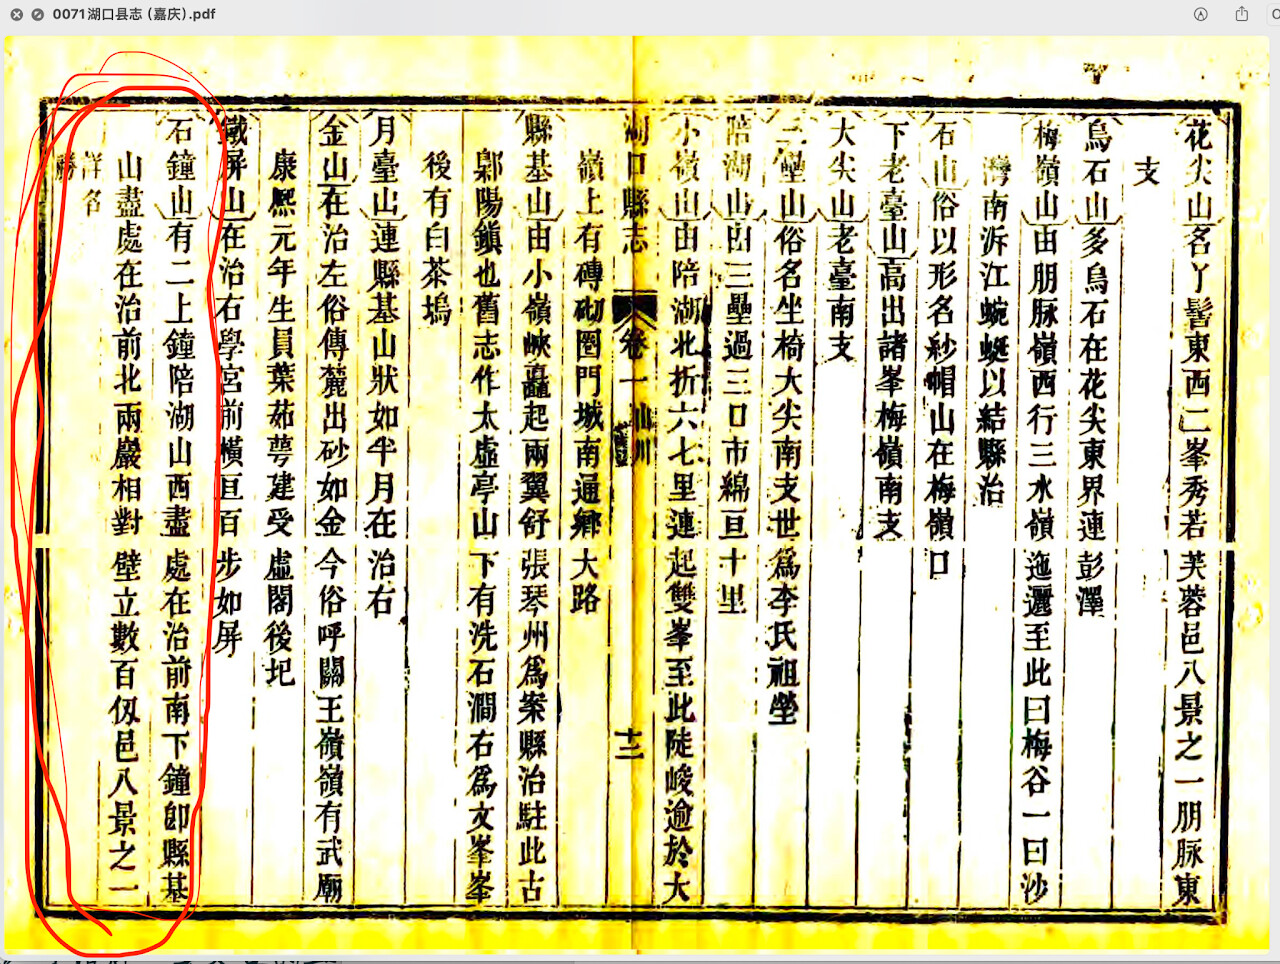 0071湖口县志 (嘉庆).pdf
花尖山名丫髻東西二峯秀若芙蓉邑八景之一朋脉東
支
烏石山多烏石在花尖東界連彭澤
梅嶺山由朋脉嶺西行三水嶺迤邐至此曰梅谷一曰沙
灣南泝江蜿蜒以結縣治
石山俗以形名紗帽山在梅嶺口
下老臺山高出諸峯梅嶺南支
大尖山老臺南支
三壟山俗名坐椅大尖南支世爲李氏祖塋
陪湖山由三壘過三口市綿亘十里
小嶺山由陪湖北折六七里連起雙峯至此陡峻逾於大
湖口縣志 卷一 山川 十二
嶺上有磚砌圈門城南通鄉大路
縣基山由小嶺峽矗起兩翼舒張琴州爲案縣治駐此古
鄡陽鎮也舊志作太虛亭山下有洗石澗右爲文峯峯
後有白茶塢
月臺山連縣基山狀如半月在治右
金山在治左俗傳麓出砂如金今俗呼關王嶺嶺有武廟
康熙元年生員葉茹蕚建受虛閣後圮
鐵屏山在治右學宮前橫亘百步如屏
石鐘山有二上鐘陪湖山西盡處在治前南下鐘卽縣基
山盡處在治前北兩巖相對壁立數百仭邑八景之一
詳名
勝